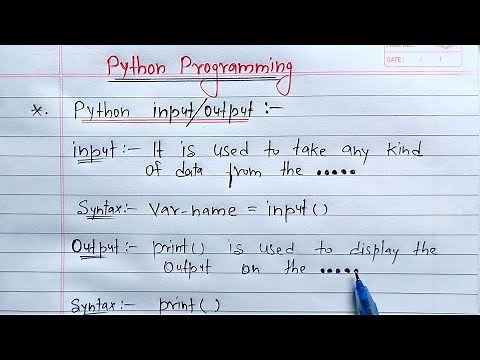 DATE: / /
Python Programming
*. Python input/output :-
input :- It is used to take any kind
of data from the .....
Syntax:- Var-name = input()
Output :- print() is used to display the
output on the .....
Syntax :- print()